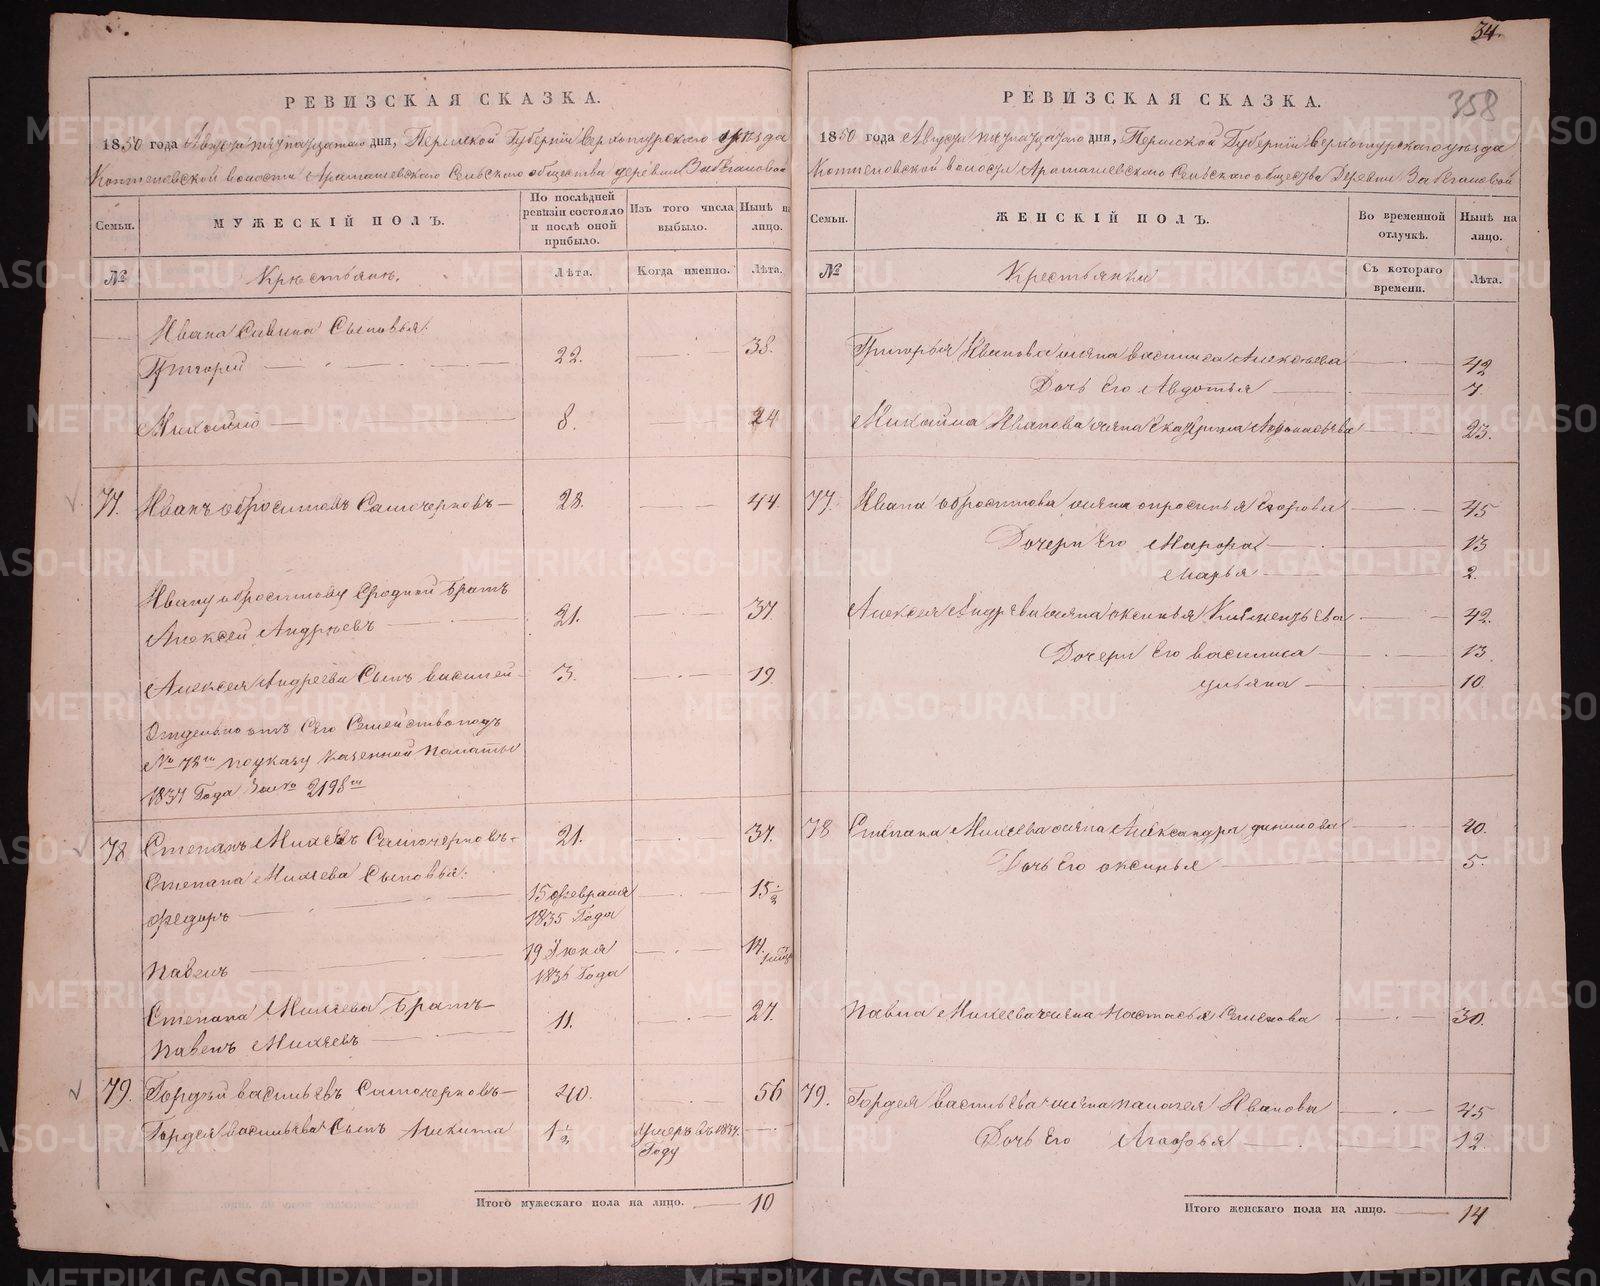 34.
358
РЕВИЗСКАЯ СКАЗКА.
1850 года Августа пятнадцатаго дня, Пермской Губернiи Верхотурскаго уѣзда
Коптеловской волости Арамашевскаго Сельскаго общества деревни
Семьи.
МУЖЕСКІЙ ПОЛЪ.
По послѣдней ревизіи состояло и послѣ оной прибыло.
Изъ того числа выбыло.
Нынѣ на лицо.
№
Крестьянъ.
Лѣта.
Когда именно.
Лѣта.
Ивана Савина Сыновья:
Григорій 22. 38.
Михайло 8. 24
77. Иванъ обросимовъ Самочерновъ 28. 44.
Ивану обросимову Сродный братъ
Алексей Андреевъ 21. 37.
Алексея Андреева Сынъ василей 3. 19
Отдельно отъ Его Семейства подъ
№ 78м по указу Казенной палаты
1837 Года За № 2198м
78 Степанъ Михеевъ Самочерновъ 21. 37.
Степана Михеева Сыновья:
Федоръ 15 Февраля 1835 Года 15 1/2
Павелъ 19 Іюня 1836 Года 14.
Степана Михеева братъ
Павелъ Михеевъ 11. 27.
79. Гордѣй васильевъ Самочерновъ 40. 56
Гордея васильева Сынъ Никита 1 1/2 умеръ въ 1837. Году
Итого мужескаго пола на лицо. 10
РЕВИЗСКАЯ СКАЗКА.
1850 года Августа пятнадцатаго дня, Пермской Губернiи Верхотурскаго уѣзда
Коптеловской волости Арамашевскаго Сельскаго общества Деревни
Семьи.
ЖЕНСКІЙ ПОЛЪ.
Во временной отлучкѣ.
Нынѣ на лицо.
№
Крестьянки
Съ котораго времени.
Лѣта.
Григорья Иванова жена василиса Алексеева 42
Дочь Его Авдотья 7
Михайла Иванова жена Екатерина Афонасьева 23.
77. Ивана обросимова жена опросинья Егорова 45
Дочери Его Марфа 13
Марья 2.
Алексея Андреева жена оксинья Климентьева 42.
Дочери Его василиса 13
ульяна 10.
78 Степана Михеева жена Александра 40.
Дочь Его оксинья 5.
Павла Михеева жена Настасья Семенова 30.
79. Гордея васильева жена палагея Иванова 45
Дочь Его Агафья 12.
Итого женскаго пола на лицо. 14
METRIKI.GASO-URAL.RU